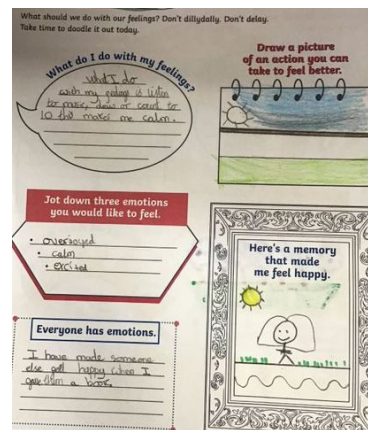 What should we do with our feelings? Don't dillydally. Don't delay.
Take time to doodle it out today.
What do I do with my feelings?
what I do
with my feelings is listin
to music, draw or count to
10 this makes me calm.
Draw a picture
of an action you can
take to feel better.
Jot down three emotions
you would like to feel.
• overjoyed
• calm
• excited
Here's a memory
that made
me feel happy.
Everyone has emotions.
I have made someone
else feel happy when I
gave them a book.